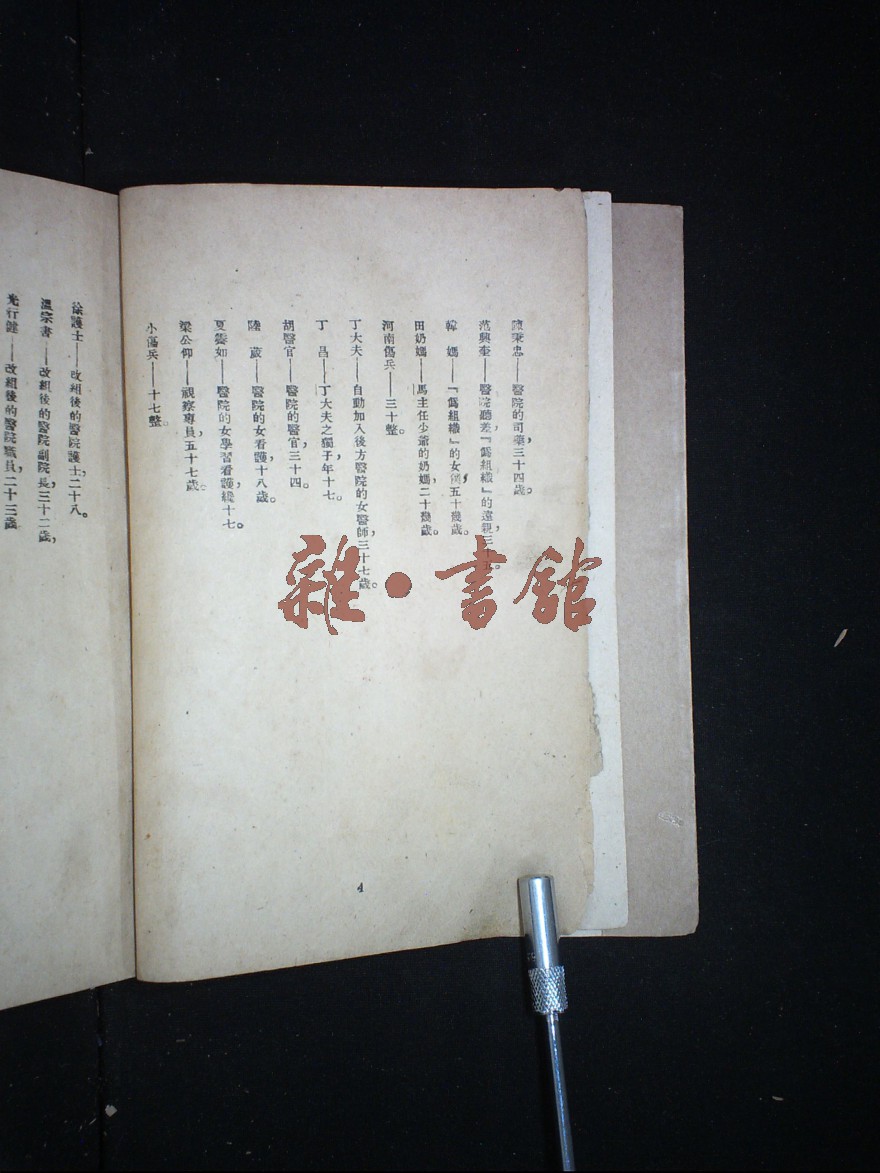 陳秉忠——醫院的司藥,三十四歲。
范興奎——醫院聽差,『僞組織』的遠親,三十五。
韓　媽——『僞組織』的女僕,五十幾歲。
田奶媽——馬主任少爺的奶媽,二十幾歲。
河南傷兵——三十整。
丁大夫——自動加入後方醫院的女醫師,三十七歲。
丁　昌——丁大夫之獨子,年十七。
胡醫官——醫院的醫官,三十四。
陸　葳——醫院的女看護,十八歲。
夏霽如——醫院的女學習看護,纔十七。
梁公仰——視察專員,五十七歲。
小傷兵——十七整。
徐護士——改組後的醫院護士,二十八。
溫宗書——改組後的醫院副院長,三十二歲,
光行健——改組後的醫院職員,二十三歲
4
雜·書館